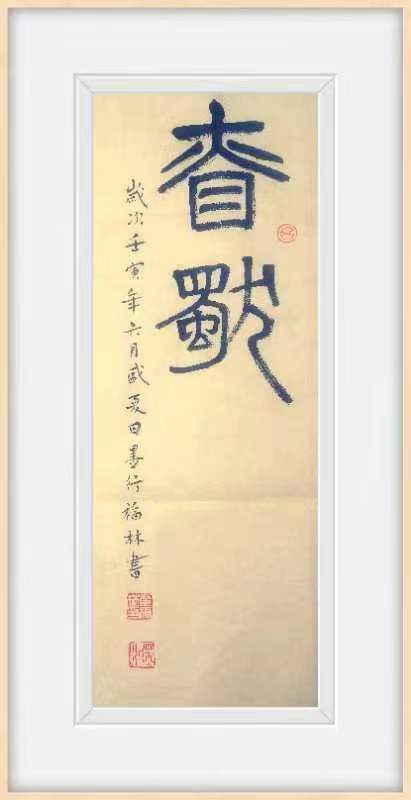 眘獨
歲次壬寅年六月盛夏日墨行福林書